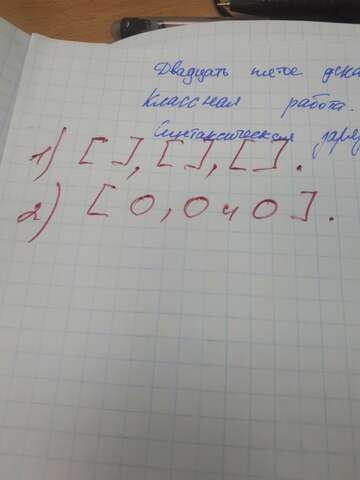 Двадцать пятое
Классная работа.
Синтаксическая
1) [ ], [ ], [ ].
2) [ О, О и О ].